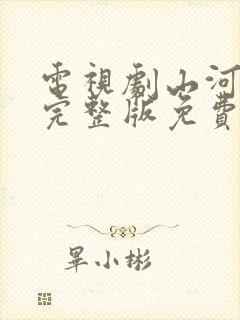 電視劇山河
完整版免費
畢小彬